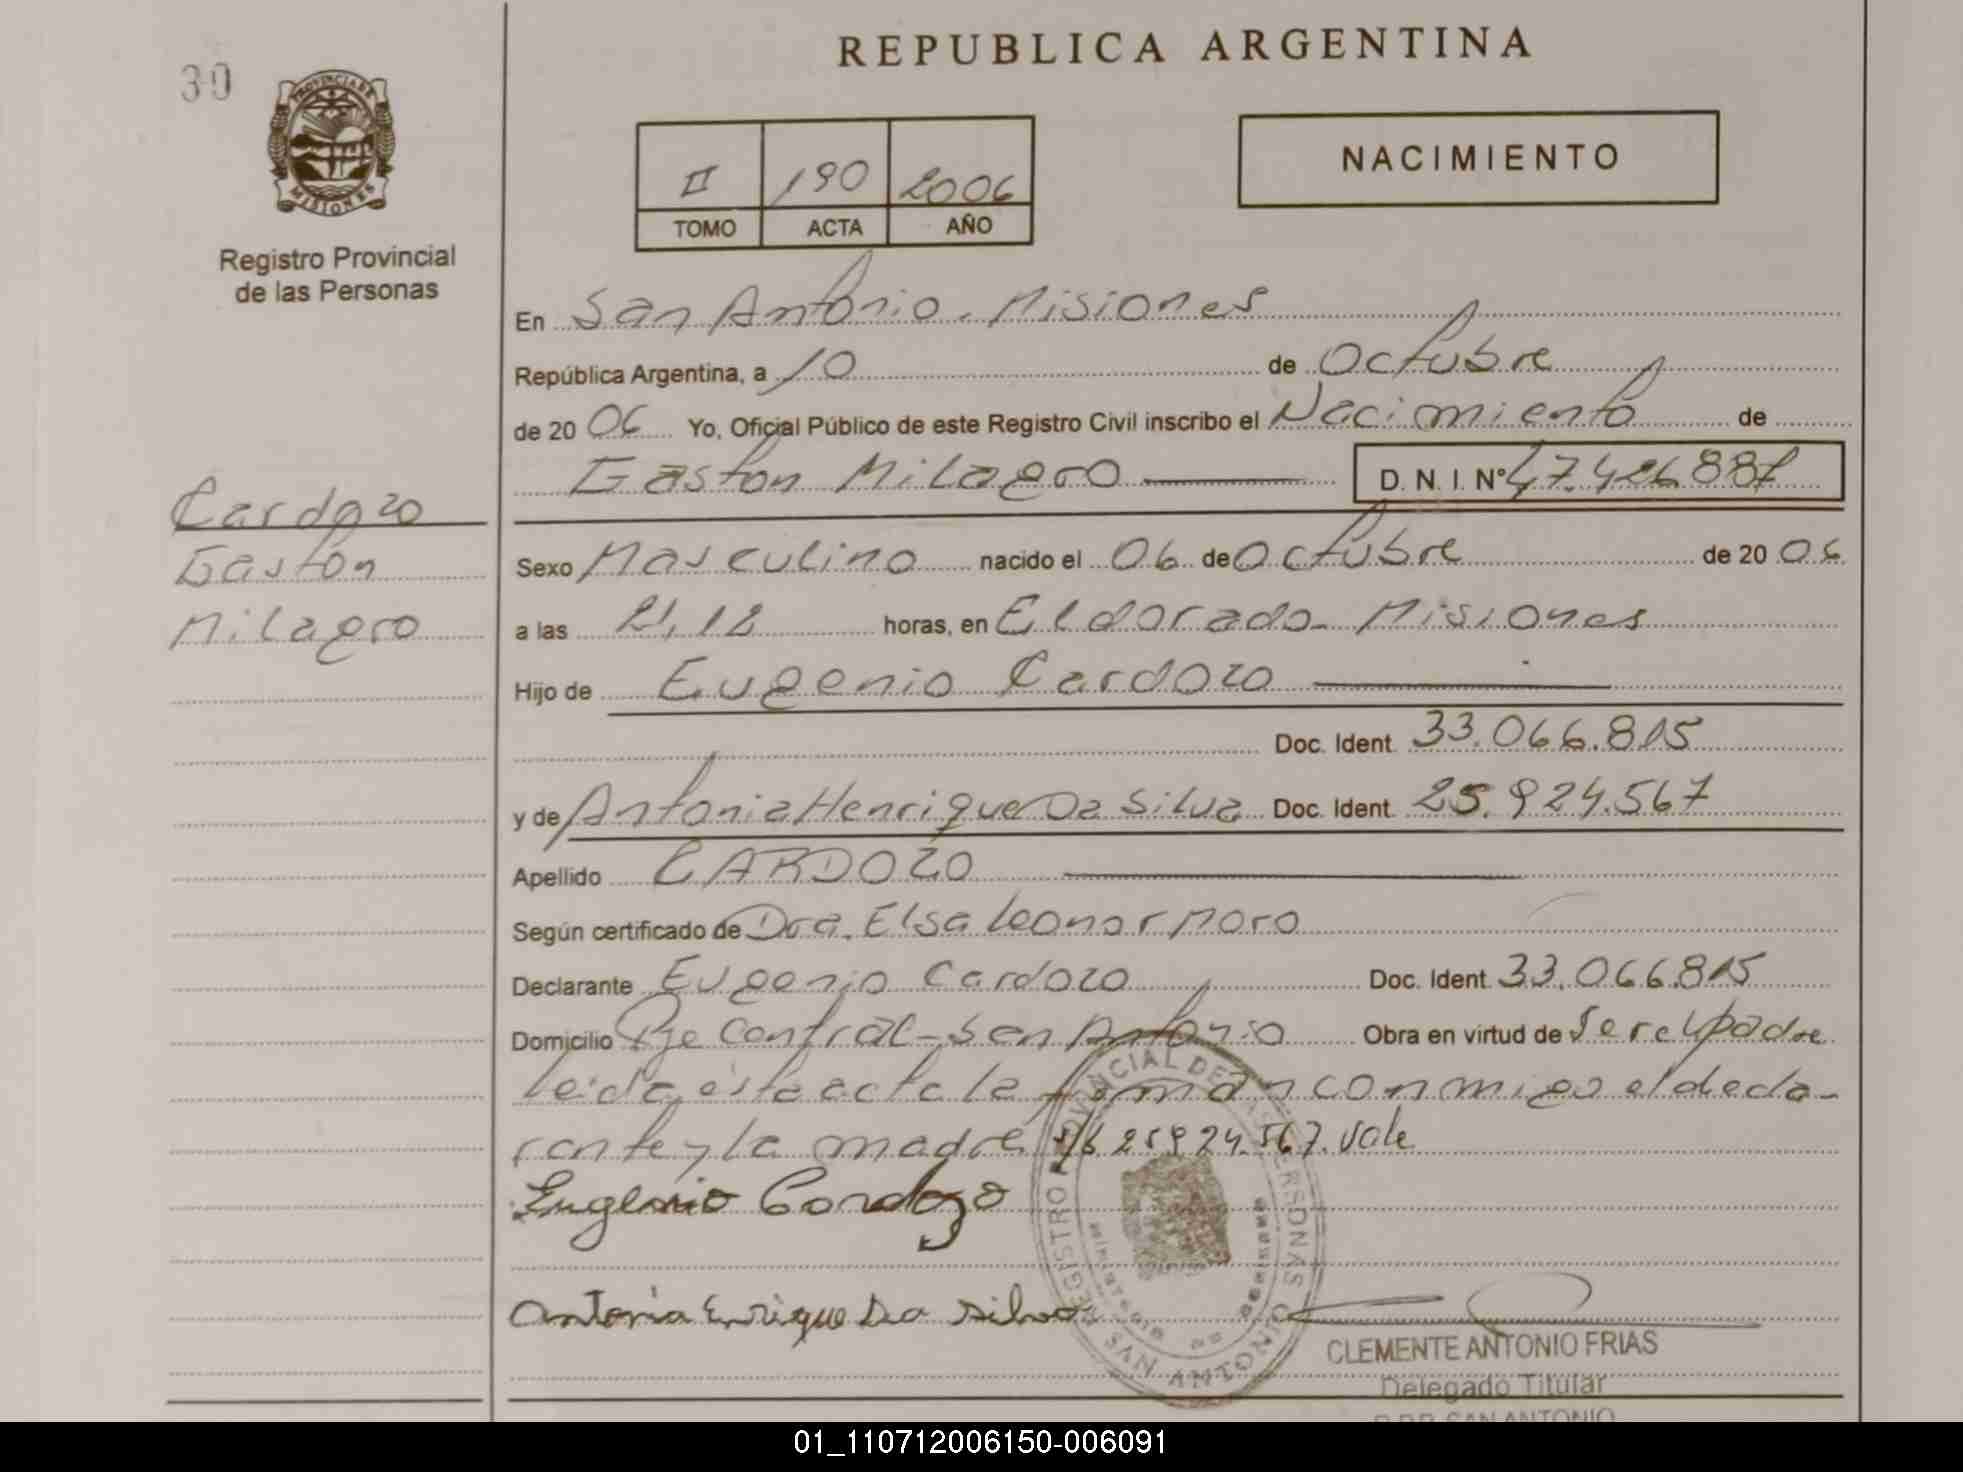 30
PROVINCIA DE
MISIONES
Registro Provincial
de las Personas
Cardozo
Gaston
Milagro
REPUBLICA ARGENTINA
II 190 2006
TOMO ACTA AÑO
NACIMIENTO
En San Antonio. Misiones
República Argentina, a 10 de Octubre
de 2006 Yo, Oficial Público de este Registro Civil inscribo el Nacimiento de
Gaston Milagro D. N. I. Nº 47.426.887
Sexo Masculino nacido el 06 de Octubre de 2006
a las 21,12 horas, en Eldorado - Misiones
Hijo de Eugenio Cardozo
Doc. Ident. 33.066.815
y de Antonia Henrique Da Silva Doc. Ident. 25.924.567
Apellido CARDOZO
Según certificado de Dra. Elsa Leonor Moro
Declarante Eugenio Cardozo Doc. Ident. 33.066.815
Domicilio Pje Central - San Antonio Obra en virtud de ser el padre
leida ésta acta la firman conmigo el decla-
rante y la madre s/b 25924.567. vale
Eugenio Cardozo
Antonia Enrique Da Silva
REGISTRO PROVINCIAL DE LAS PERSONAS
SAN ANTONIO
CLEMENTE ANTONIO FRIAS
Delegado Titular
R.P.P. SAN ANTONIO
01_110712006150-006091